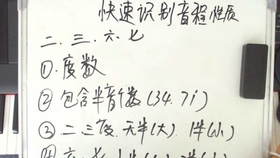 快速识别音程性质
二.三.六.七
①.度数
②包含半音个数(34.7i)
③二.三度.无半(大).1半(小)
④六.七